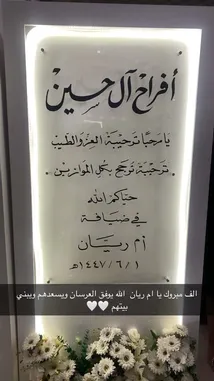 أفراح آل حسين
يا مرحبا ترحيبة العز والطيب
ترحيبة ترجح بكل الموازين
حياكم الله
في ضيافة
أم ريان
١ / ٦ / ١٤٤٧هـ
الف مبروك يا ام ريان الله يوفق العرسان ويسعدهم ويبني
بيتهم 🤍🤍